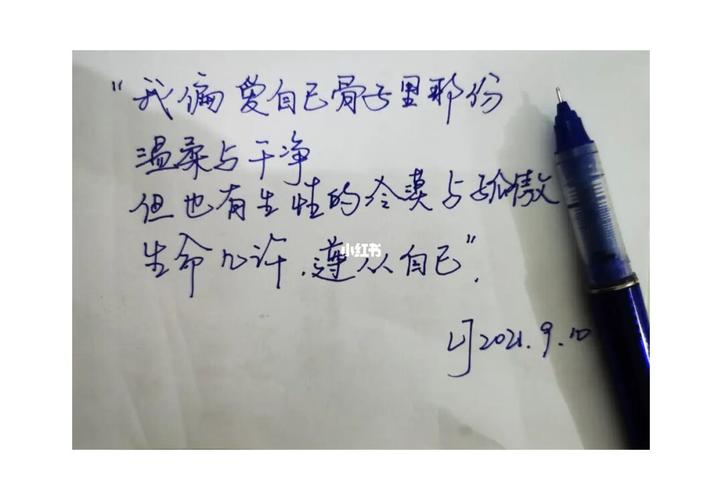 “我偏爱自己骨子里那份
温柔与干净
但也有生性的冷漠与骄傲
小红书
生命几许.遵从自己”.
LJ 2021.9.10